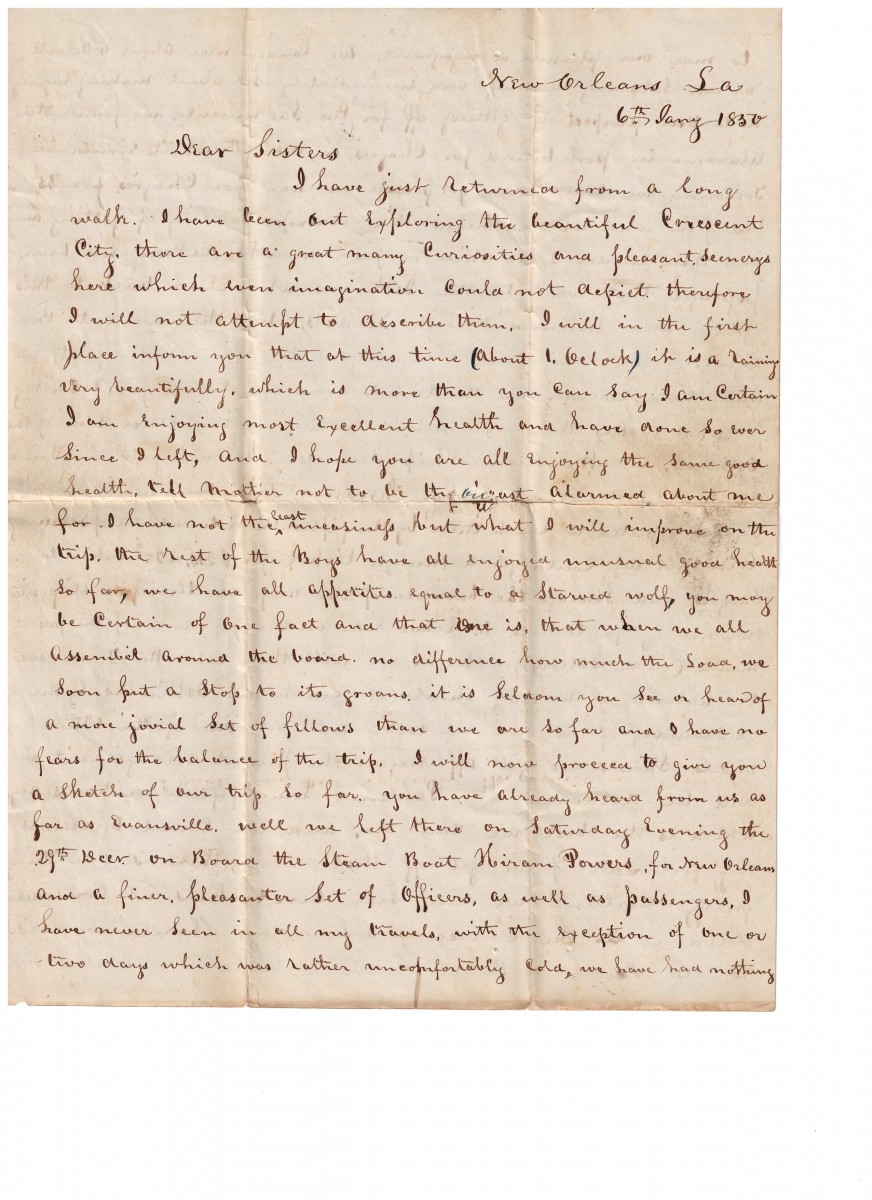 New Orleans La
6th Jany 1850
Dear Sisters
I have just returned from a long
walk. I have been out Exploring the beautiful Crescent
City. there are a great many Curiosities and pleasant Seenerys
here which even imagination Could not depict. therefore
I will not attempt to describe them. I will in the first
place inform you that at this time (About 1. Oclock) it is a raining
very beautifully. which is more than you Can Say I am Certain
I am Enjoying most Excellent health and have done So Ever
Since I left, And I hope you are all Enjoying the Same good
health, tell Mother not to be the Alarmed about me
for I have not the least uneasiness but what I will improve on the
trip. the rest of the Boys have all enjoyed unusual good health
So far, we have all appetites equal to a Starved wolf, you may
be Certain of One fact and that One is, that when we all
Assembel around the board. no difference how much the Load, we
Soon put a Stop to its groans. it is Seldom you See or hear of
a more jovial Set of fellows than we are so far and I have no
fears for the balance of the trip. I will now proceed to give you
a Sketch of our trip So far. you have already heard from us as
far as Evansville. well we left there on Saturday Evening the
29th Decr. on Board the Steam Boat Hiram Powers, for New Orleans
And a finer, pleasanter Set of Officers, as well as passengers, I
have never Seen in all my travels, with the Exception of one or
two days which was rather uncomfortably Cold, we have had nothing